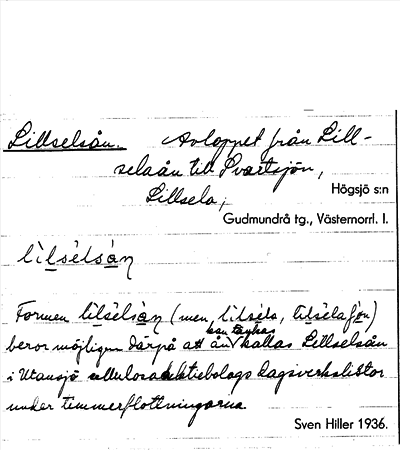 Lillselsån. Avloppet från Lill-
selaån till Svartsjön,
Högsjö s:n
Lillsela;
Gudmundrå tg., Västernorrl. l.
lìlsèlsán
Formen lìlsèlsàn (men, lìlsela, lìlselafon)
kan tänkas
beror möjligen därpå att ån kallas Lillselsån
i Utansjö cellulosaaktiebolags dagsverkslistor
under timmerflottningarna
Sven Hiller 1936.